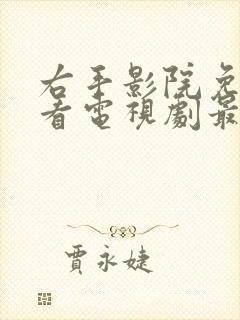 右手影院免
看電視劇最
賈永婕